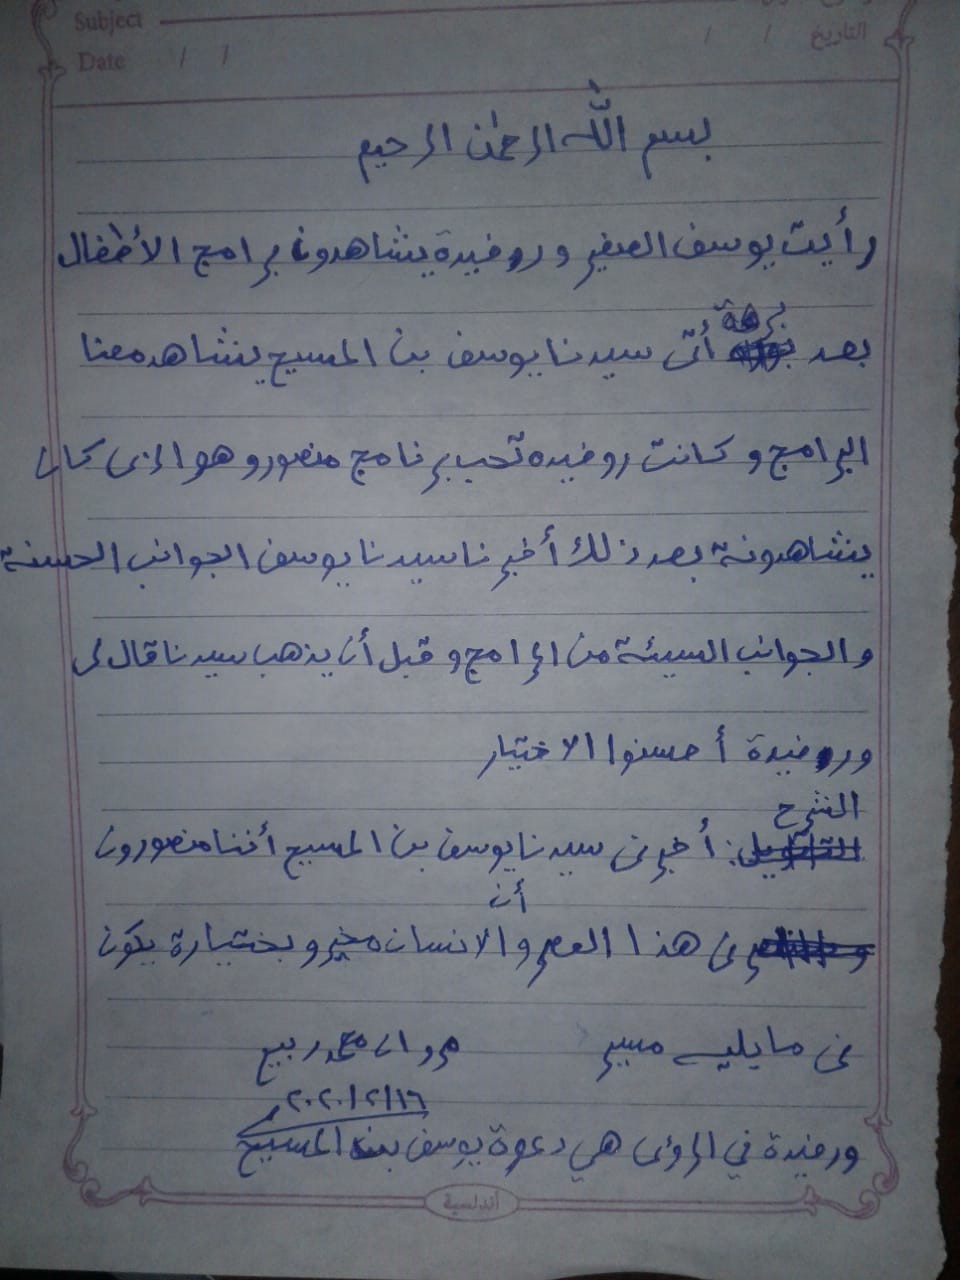 Subject
التاريخ / /
Date / /
بسم الله الرحمٰن الرحيم
رأيت يوسف الصغير و روفيدة يشاهدون برامج الأطفال
برهة
بعد أتى سيدنا يوسف بن المسيح يشاهد معنا
البرامج و كانت روفيده تحب برنامج منصور و هو الذى كان
يشاهدونة بعد ذلك أخبرنا سيدنا يوسف الجوانب الحسنة
و الجوانب السيئة من البرامج و قبل أن يذهب سيدنا قال لى
و روفيدة أحسنوا الاختيار
الشرح
: أخبرنى سيدنا يوسف بن المسيح أننا منصورون
أن
فى هذا العصر و الانسان مخير و بختيارة يكون
فى ما يليه مسير مروان محمد ربيع
٢٠٢٠/٢/١٦
و رفيدة في الرؤى هي دعوة يوسف بن المسيح
أندلسية